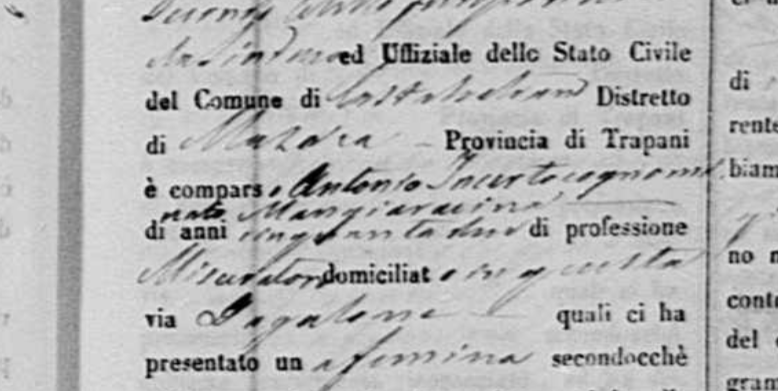 ed Uffiziale dello Stato Civile
del Comune di Castelvetrano Distretto
di Mazara - Provincia di Trapani
è compars o Antonio Incerto cognomi
nato Mangiaracina
di anni cinquantadue di professione
Misuratore domiciliat o in questa
via quali ci ha
presentato un a femina secondocchè
di
rente
biam
no
conte
del
gram